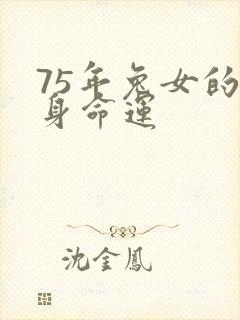 75年兔女的
身命运
沈金鳳